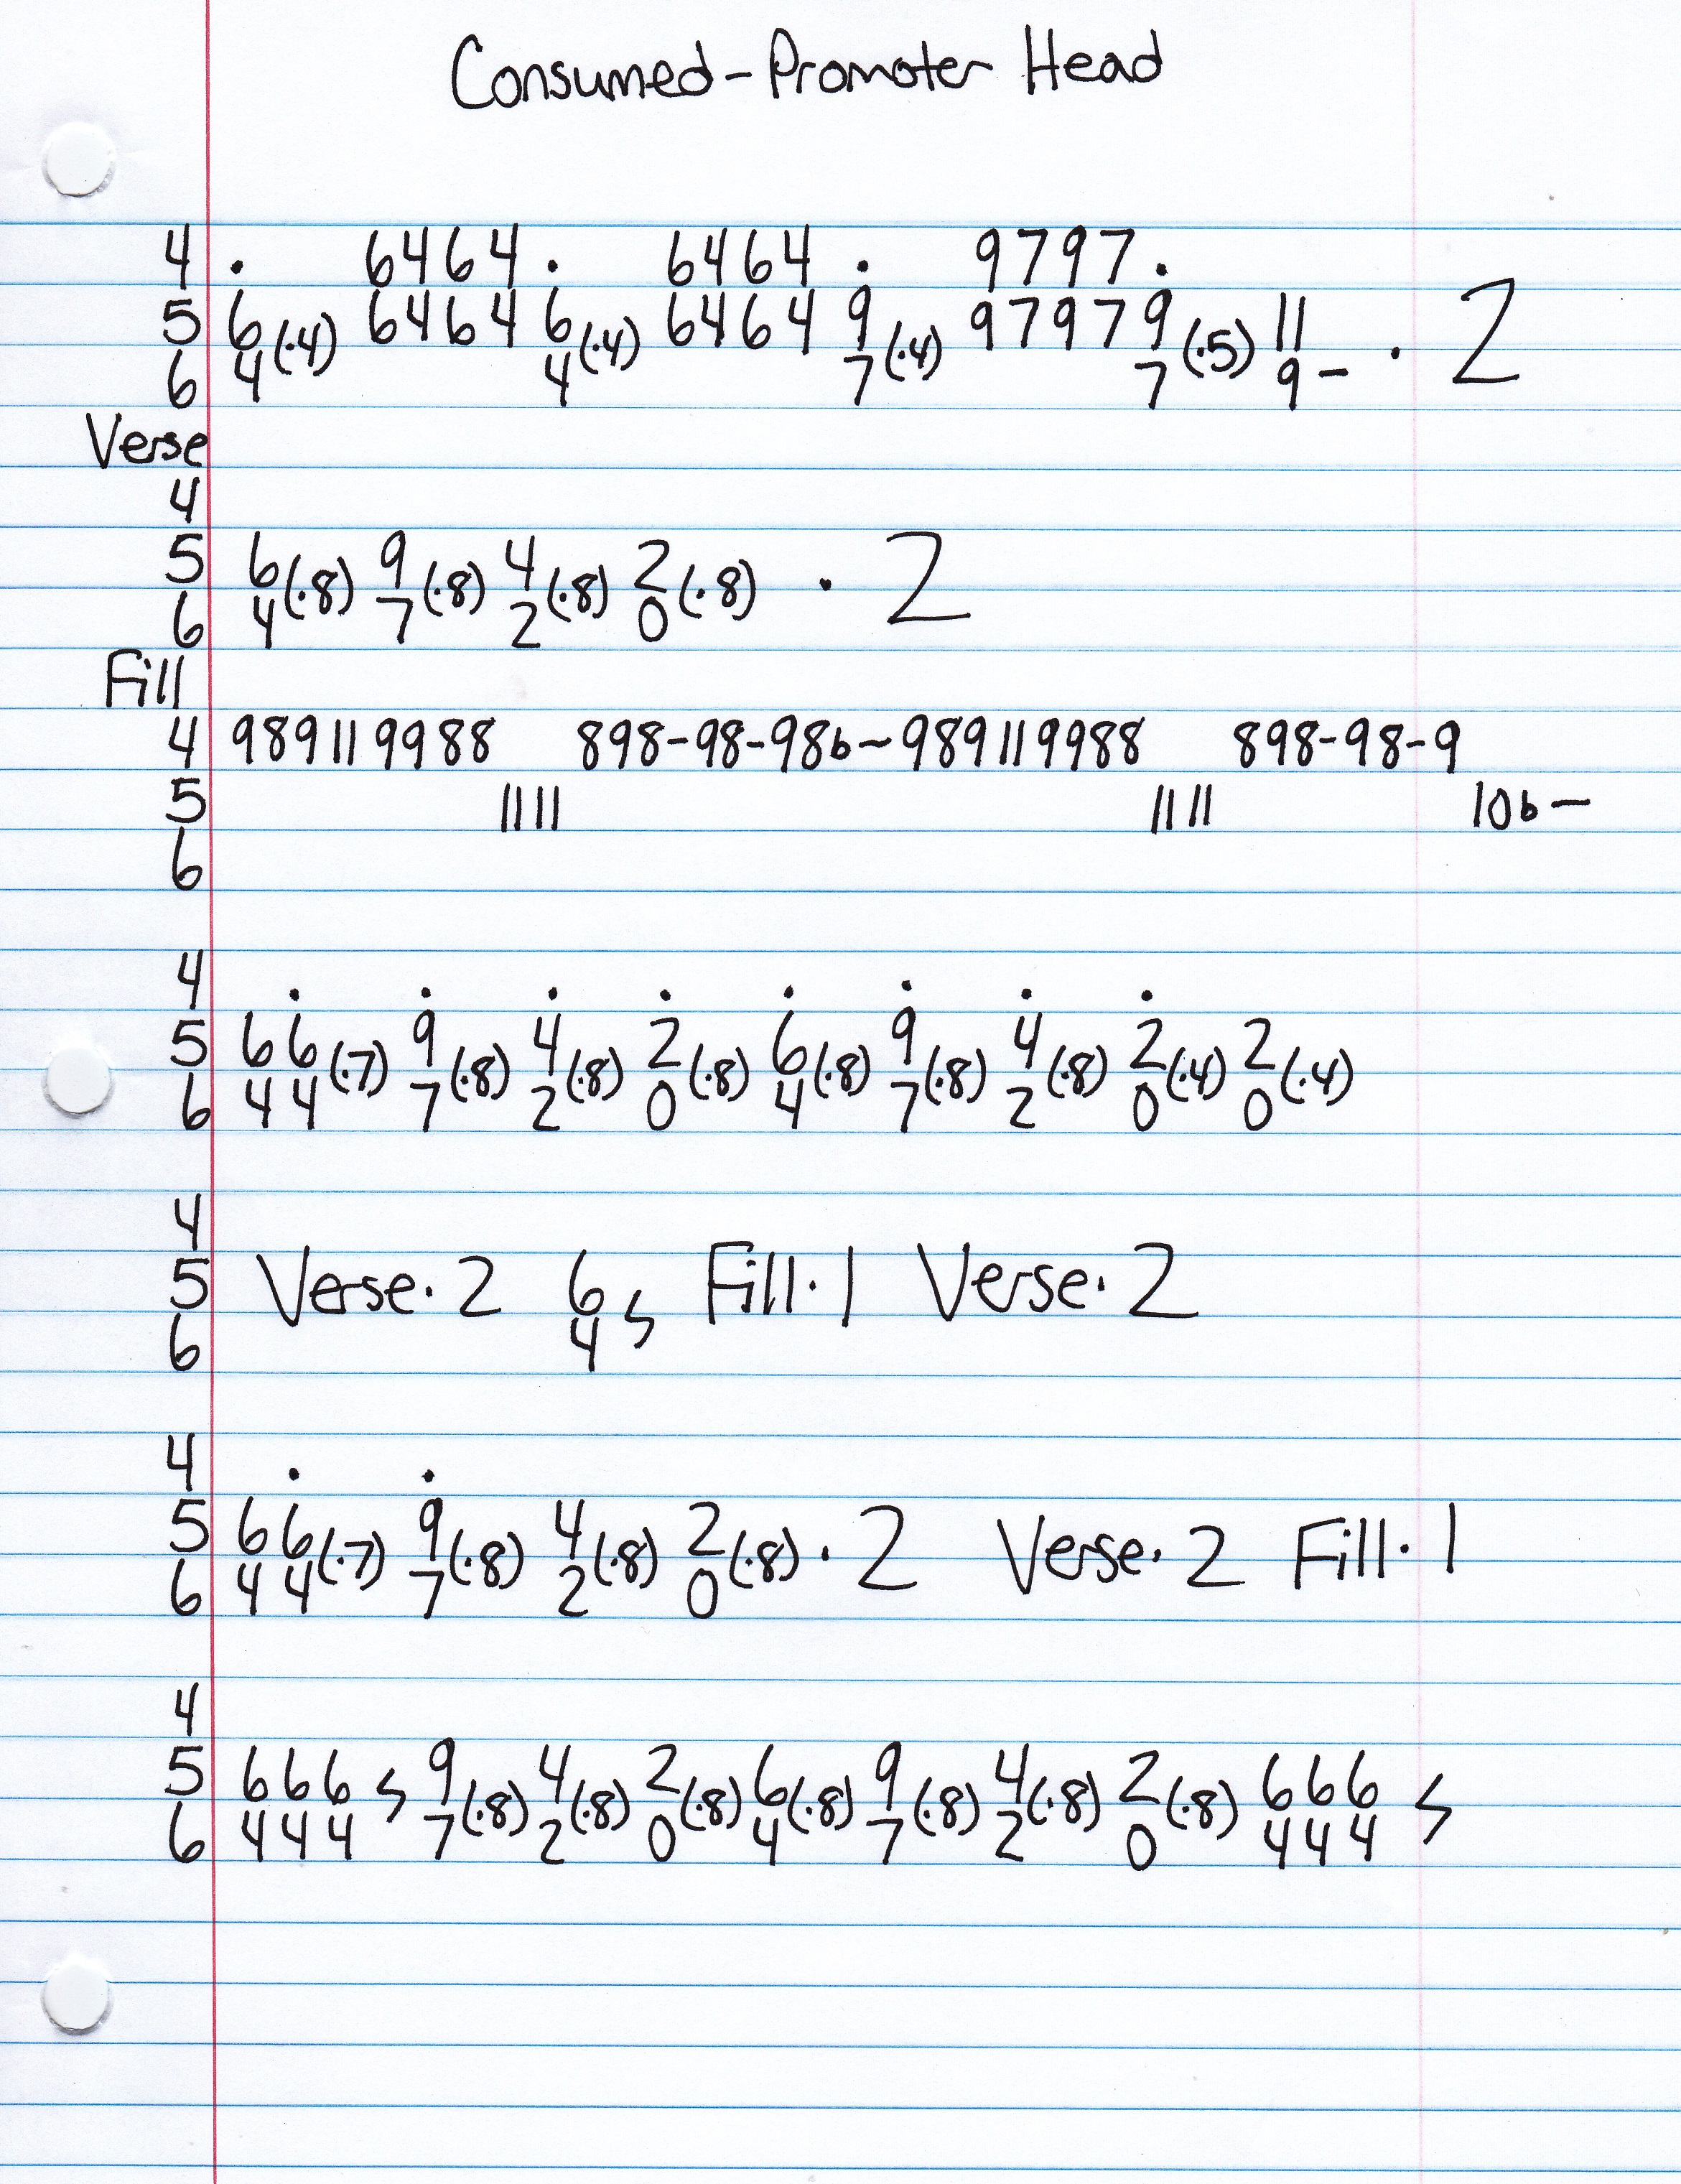 Consumed-Promoter Head
4 . 6464 . 6464 . 9797 .
5 6(·4) 6464 6(·4) 6464 9(·4) 97979(·5) 11 · 2
6 4 4 7 7 9-
Verse
4
5 6(·8) 9(·8) 4(·8) 2(·8) · 2
6 4 7 2 0
Fill
4 98911 9988 898-98-98b~98911 9988 898-98-9
5 1111 1111 10b-
6
4 . . . . . . . .
5 66(·7) 9(·8) 4(·8) 2(·8) 6(·8) 9(·8) 4(·8) 2(·4) 2(·4)
6 44 7 2 0 4 7 2 0 0
4
5 Verse·2 6 Fill·1 Verse·2
6 4
4 . .
5 66(·7) 9(·8) 4(·8) 2(·8)·2 Verse·2 Fill·1
6 44 7 2 0
4
5 666 9(·8) 4(·8) 2(·8) 6(·8) 9(·8) 4(·8) 2(·8) 666
6 444 7 2 0 4 7 2 0 444